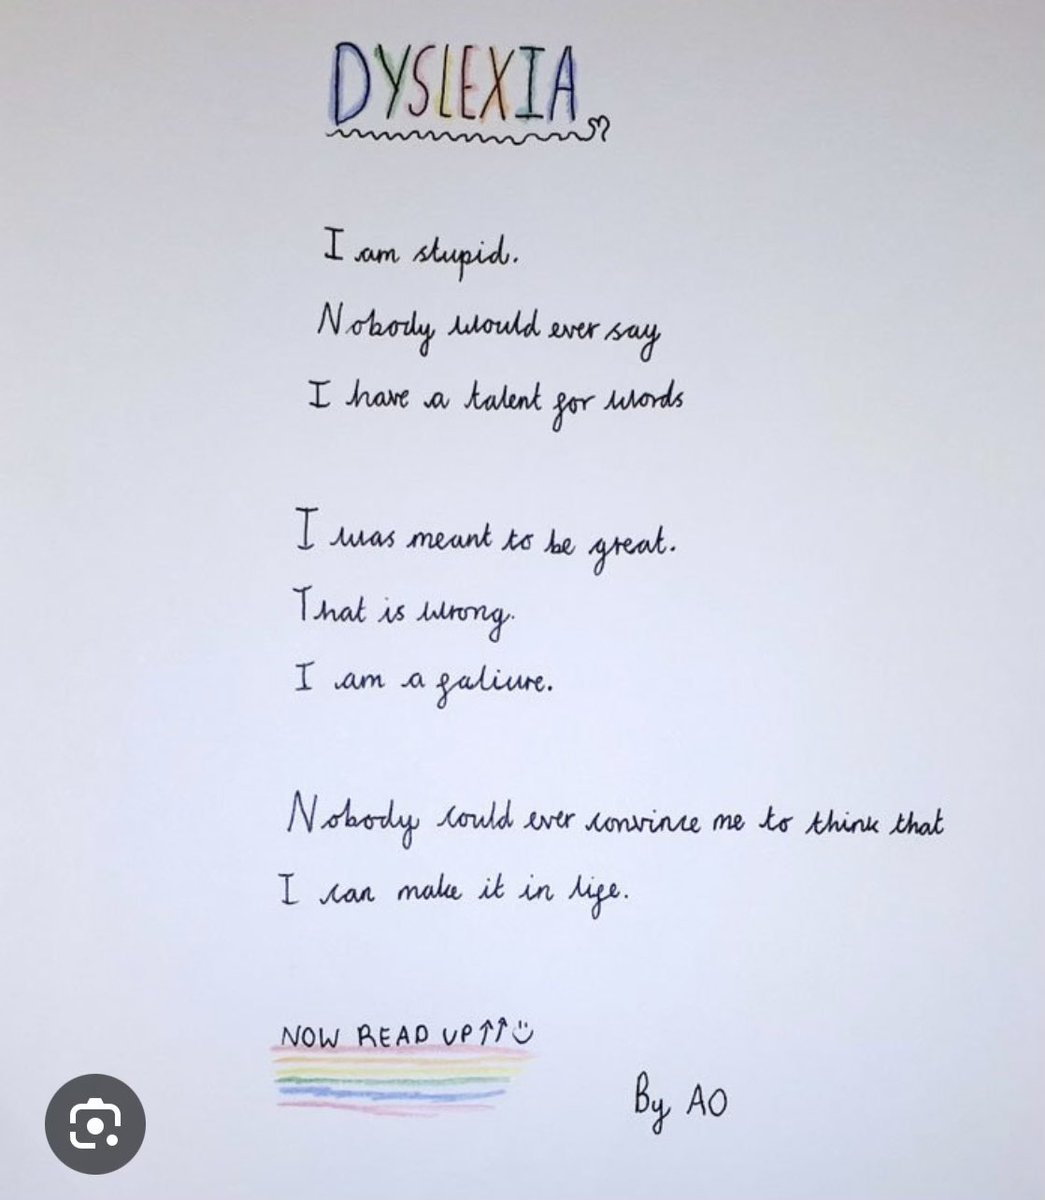 DYSLEXIA
I am stupid.
Nobody would ever say
I have a talent for words
I was meant to be great.
That is wrong.
I am a faliure.
Nobody could ever convince me to think that
I can make it in life.
NOW READ UP↑↑
By AO